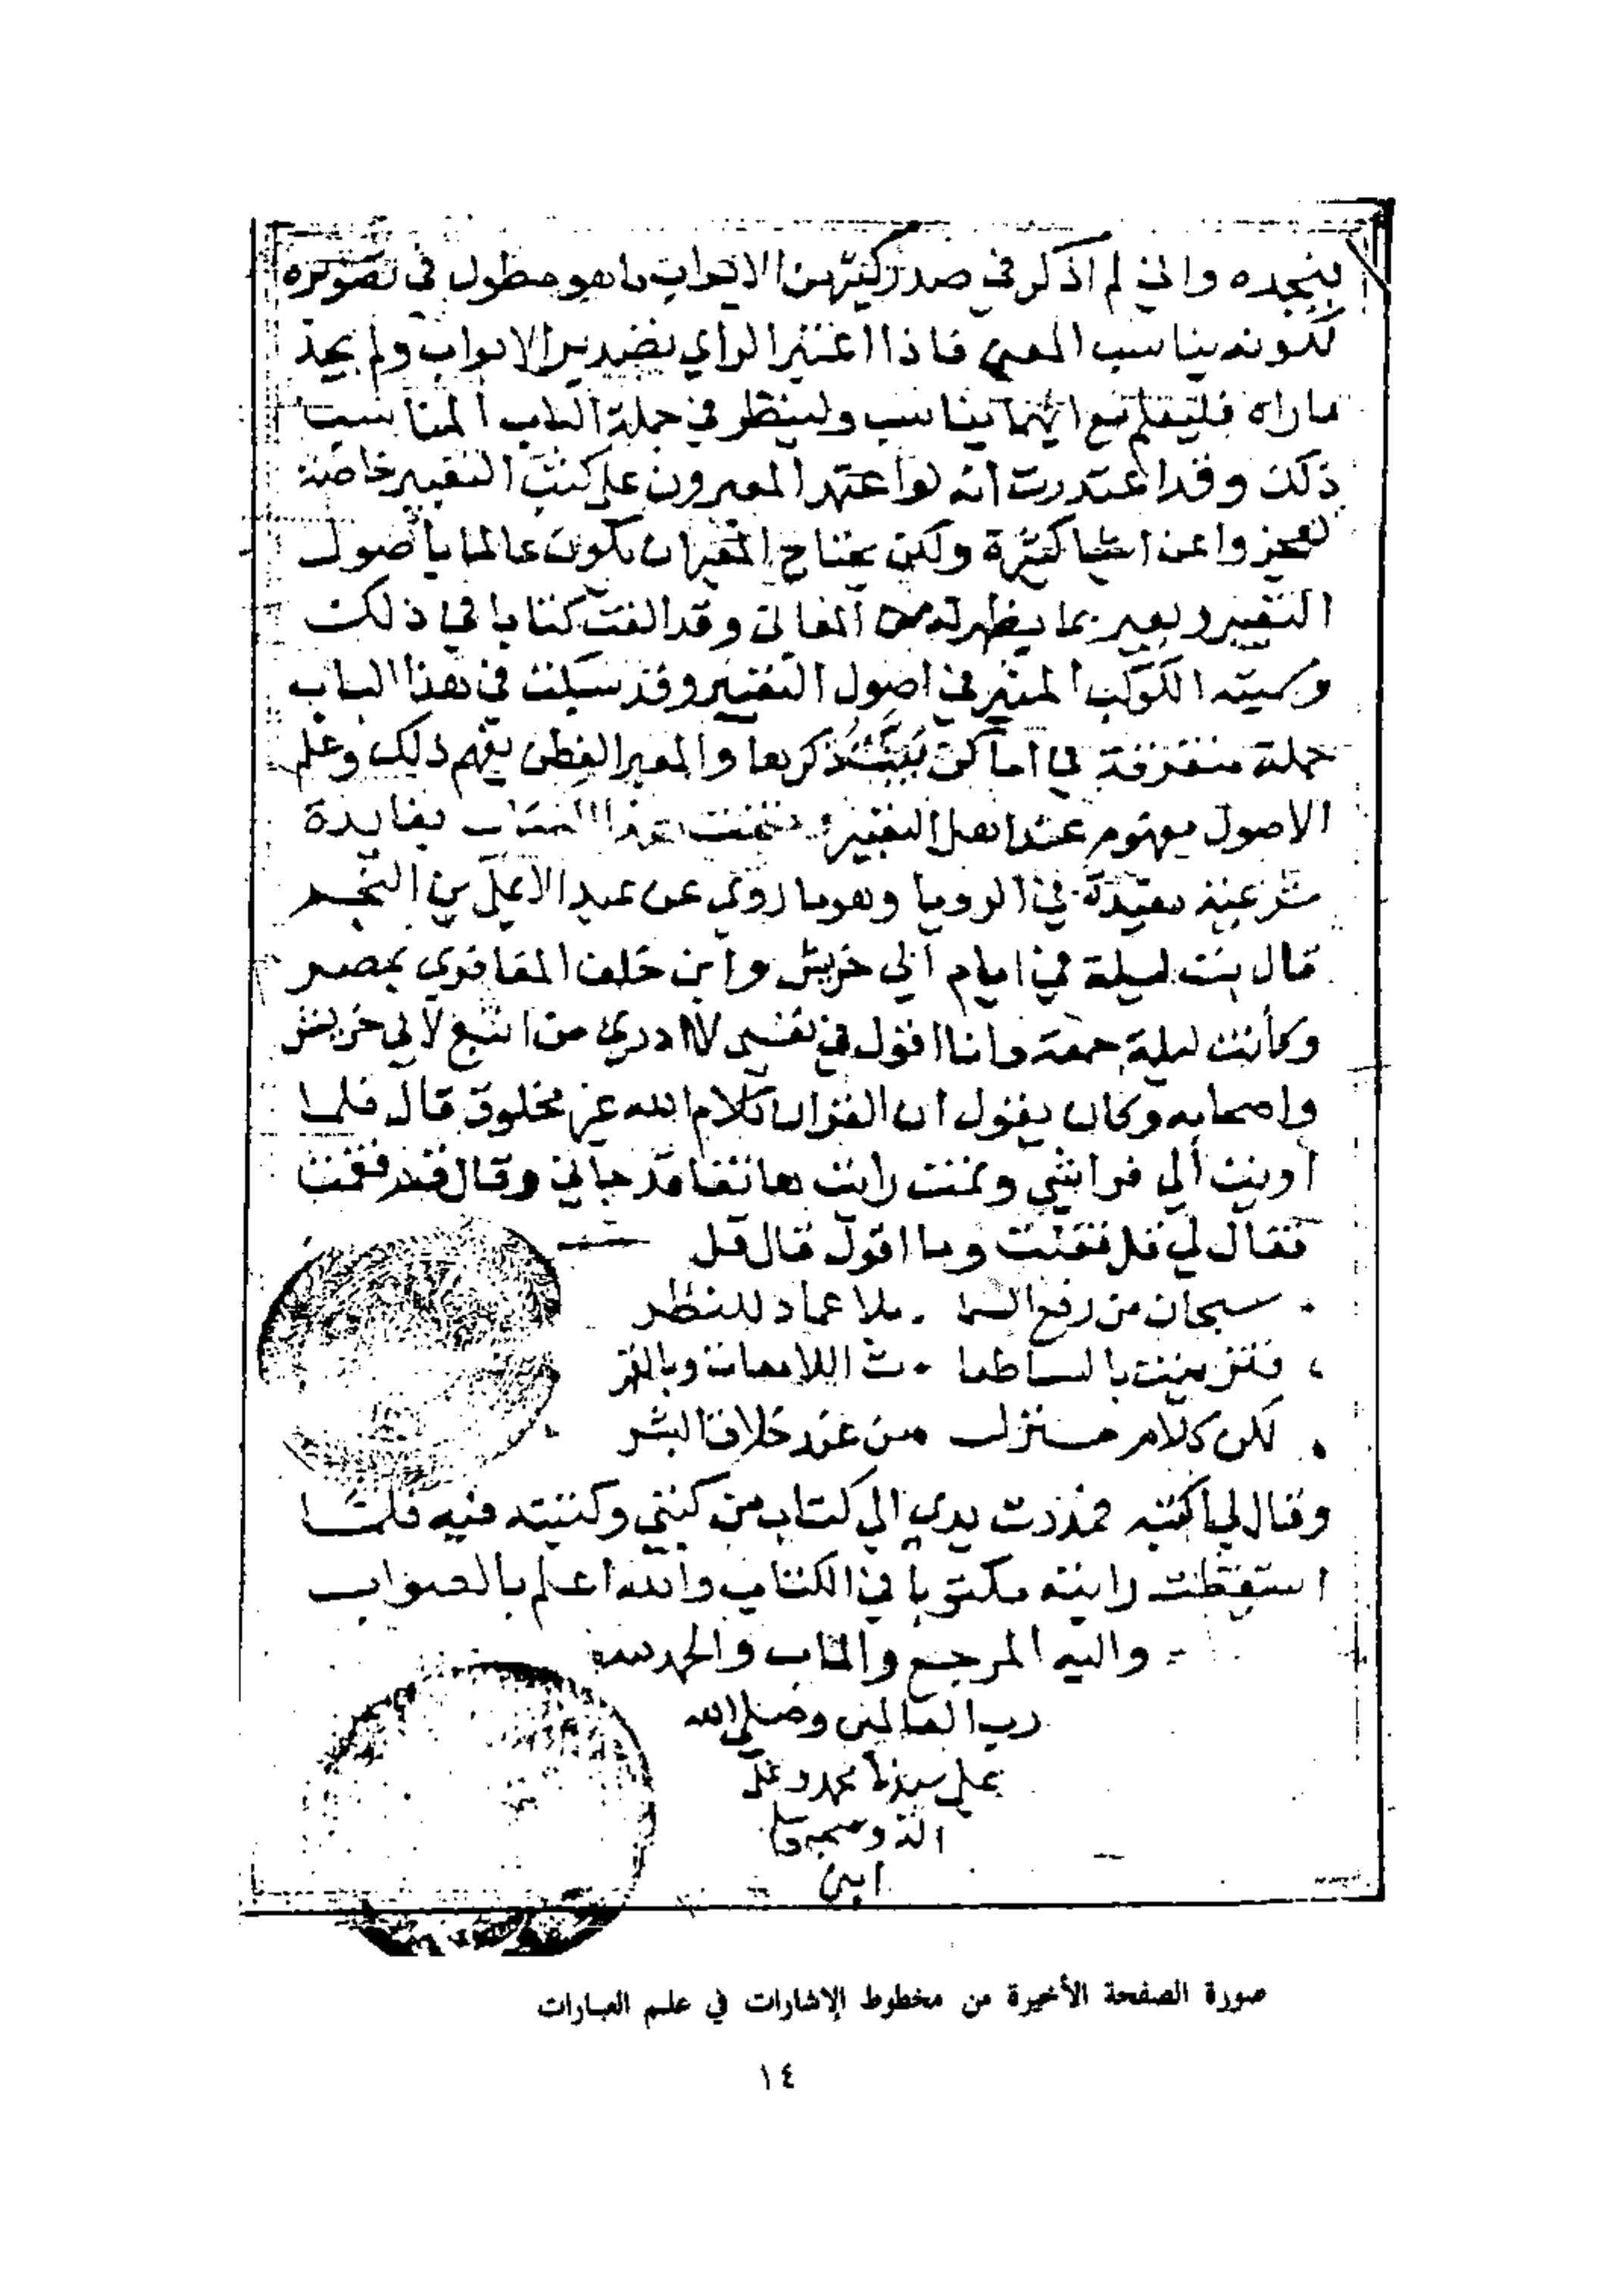 بنجده واني لم اذكر في صدر كثير من الابواب ما هو مطول في تصويره
لكونه يناسب المعنى فاذا اعتبر الراي بصدير الابواب ولم يجد
ماراه فليعلم مع ايهما يناسب ولينظر في جملة الباب المناسب
ذلك وقد اعتدرت انه لو اعتمد المعبرون على كتب التعبير خاصة
لعجزوا عن اشيا كثيرة ولكن يحتاج المعبر ان يكون عالما باصول
التعبير ويعبر بما يظهر له من المعاني وقد الفت كتابا في ذلك
وسميته الكوكب المنير في اصول التعبير وقد سيلت في هذا الباب
جملة متفرقة في اماكن ذكرها والمعبر الفطن يفهم ذلك وعلم
الاصول مفهوم عند اهل التعبير وختمت هذا الكتاب بفايدة
شرعية مفيدة في الرويا وهو ما روي عن عبد الاعلى بن النجم
قال بت ليلة في ايام ابي خريش وابن خلف المعافري بمصر
وكانت ليلة جمعة وانا اقول في نفسي لا ادري من اتبع لابي خريش
واصحابه وكان يقول ان القران كلام الله غير مخلوق قال فلما
اويت الي فراشي ونمت رايت هاتفا قد جاني وقال قم فقمت
فقال لي قل فقلت وما اقول قال قل
سبحان من رفع السما . بلا عماد للنظر
فتزينت بالساطعا . ت اللامعات وبالقمر
لكن كلام منزل من عند خلاق البشر
وقال لي اكتبه فمددت يدي الي كتاب من كتبي وكتبته فيه فلما
استيقظت رايته مكتوبا في الكتاب والله اعلم بالصواب
واليه المرجع والماب والحمد لله
رب العالمين وصلي الله
علي سيدنا محمد وعلى
اله وصحبه
امين
صورة الصفحة الأخيرة من مخطوط الإشارات في علم العبارات
١٤